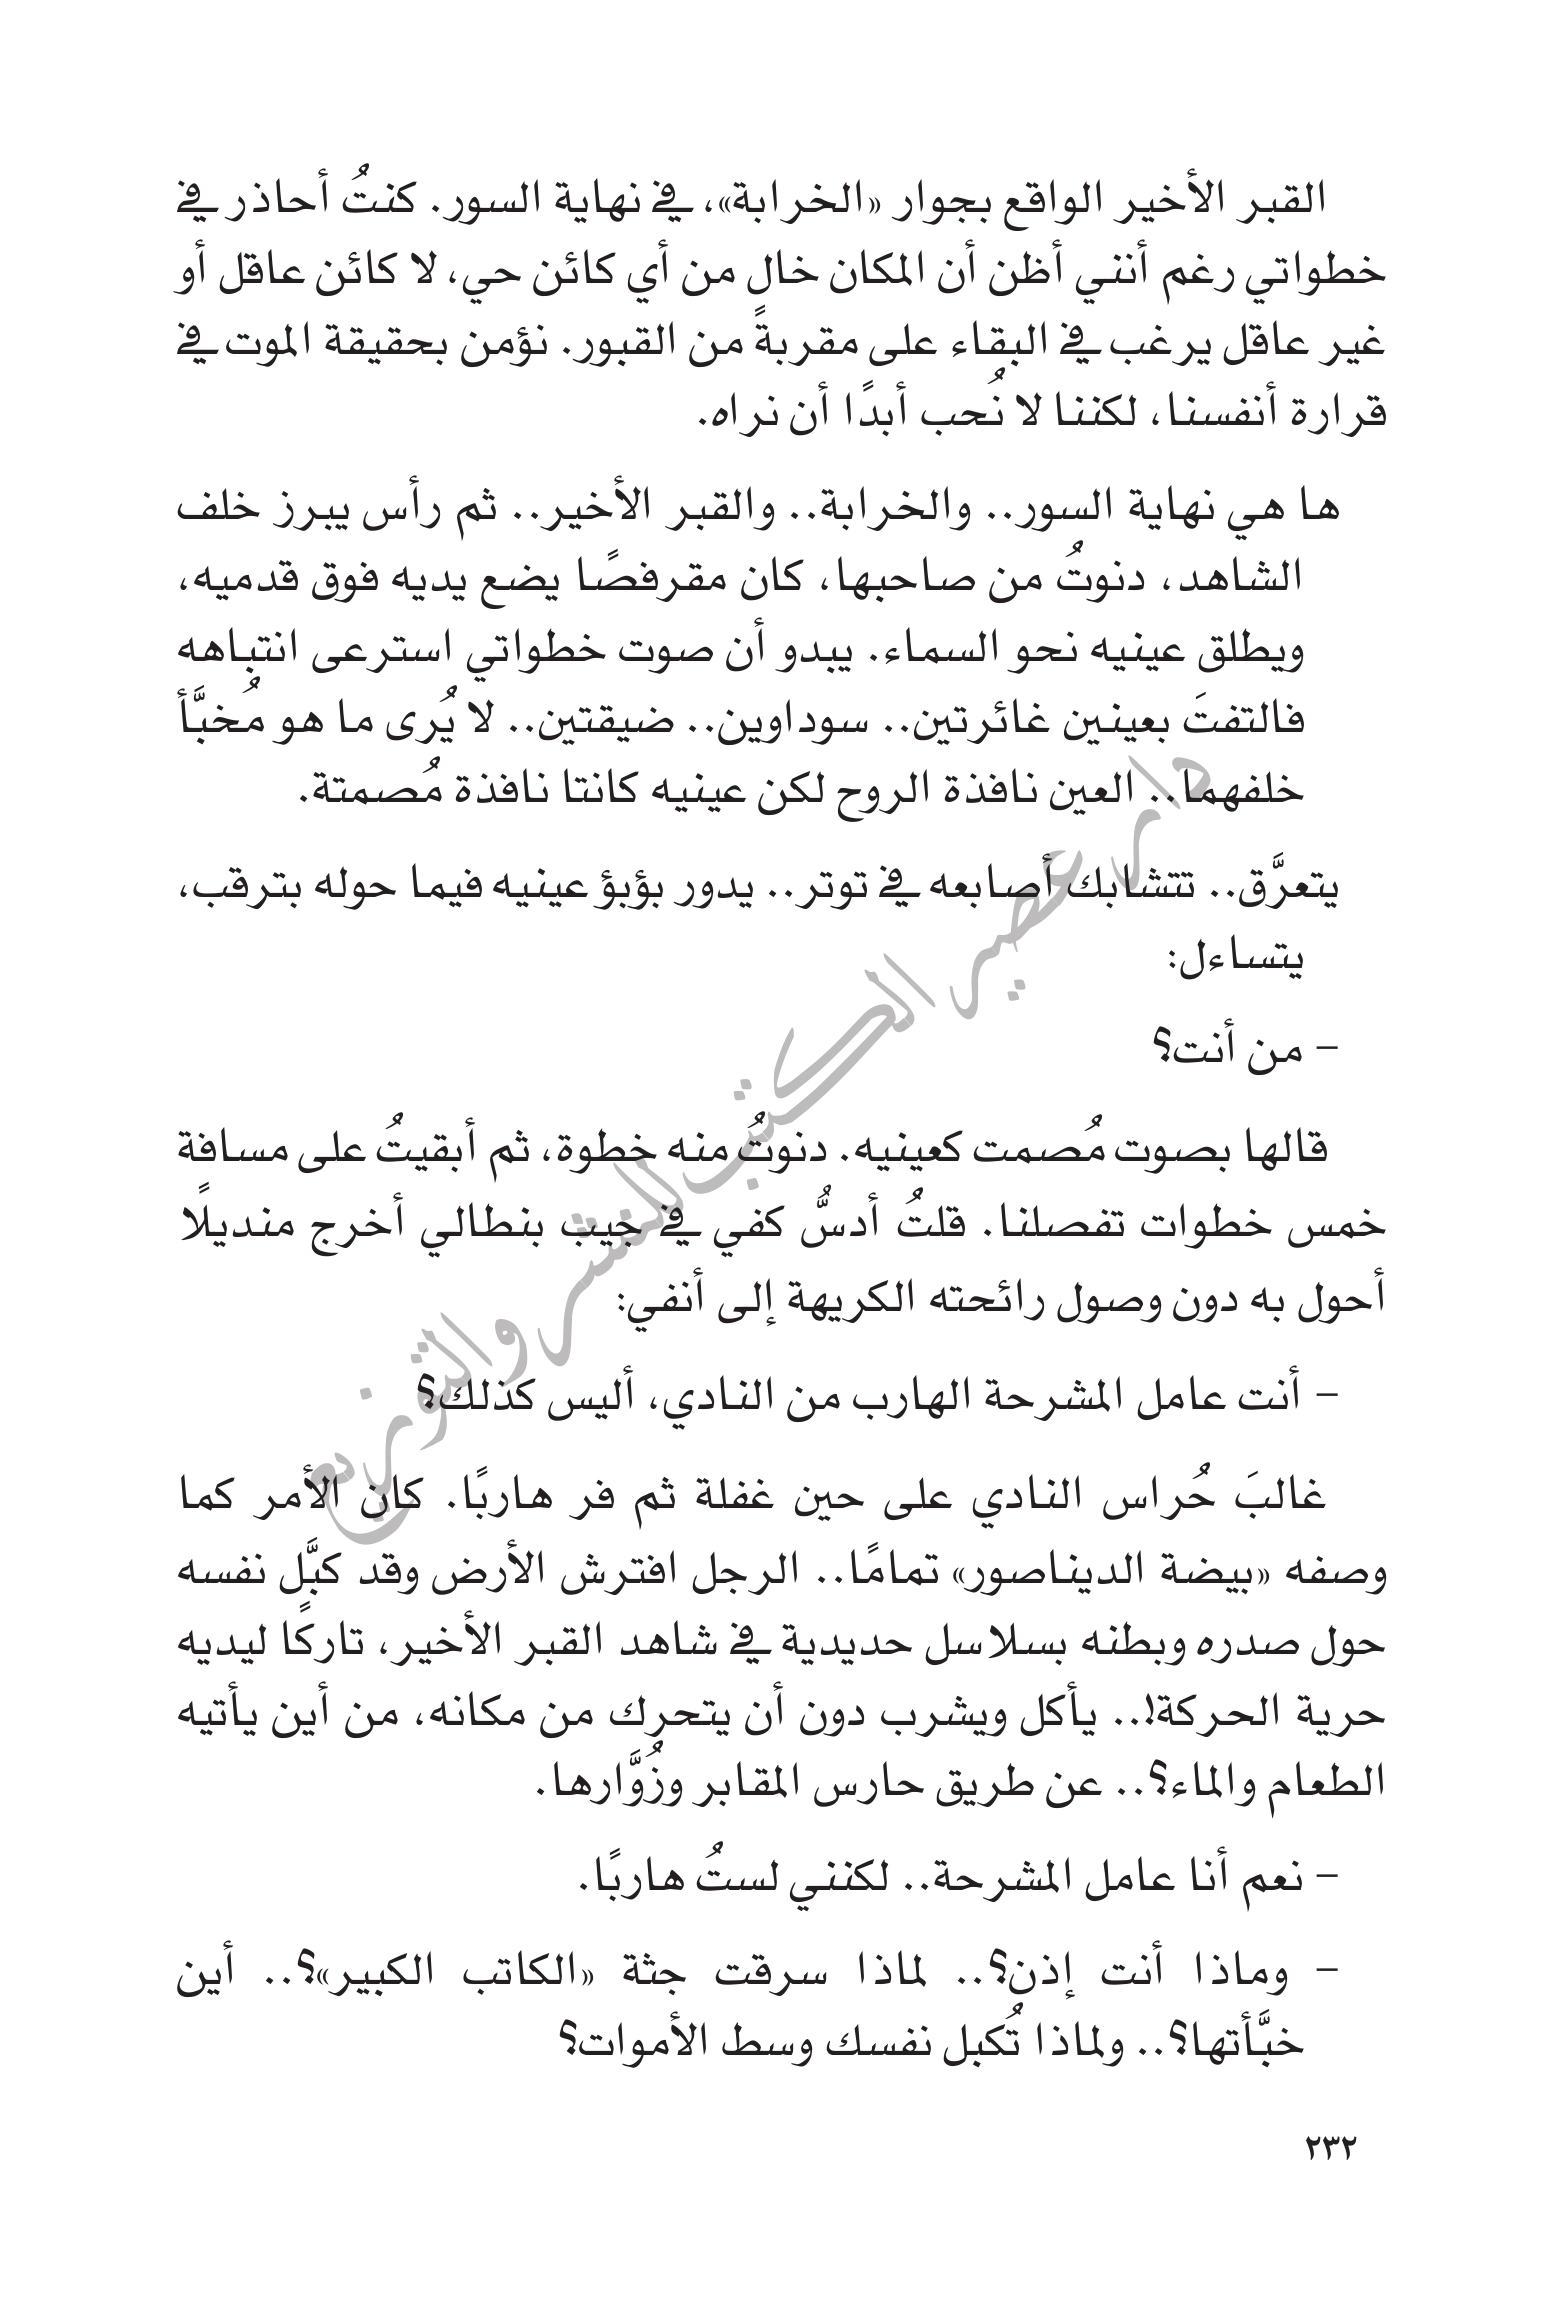 القبر الأخير الواقع بجوار «الخرابة»، في نهاية السور. كنتُ أحاذر في
خطواتي رغم أنني أظن أن المكان خالٍ من أي كائن حي، لا كائن عاقل أو
غير عاقل يرغب في البقاء على مقربةً من القبور. نؤمن بحقيقة الموت في
قرارة أنفسنا، لكننا لا نُحب أبدًا أن نراه.
ها هي نهاية السور.. والخرابة.. والقبر الأخير.. ثم رأس يبرز خلف
الشاهد، دنوتُ من صاحبها، كان مقرفصًا يضع يديه فوق قدميه،
ويطلق عينيه نحو السماء. يبدو أن صوت خطواتي استرعى انتباهه
فالتفتَ بعينين غائرتين.. سوداوين.. ضيقتين.. لا يُرى ما هو مُخبَّأ
خلفهما.. العين نافذة الروح لكن عينيه كانتا نافذة مُصمتة.
يتعرَّق.. تتشابك أصابعه في توتر.. يدور بؤبؤ عينيه فيما حوله بترقب،
يتساءل:
– من أنت؟
قالها بصوت مُصمت كعينيه. دنوتُ منه خطوة، ثم أبقيتُ على مسافة
خمس خطوات تفصلنا. قلتُ أدسُّ كفي في جيب بنطالي أخرج منديلًا
أحول به دون وصول رائحته الكريهة إلى أنفي:
– أنت عامل المشرحة الهارب من النادي، أليس كذلك؟
غالبَ حُراس النادي على حين غفلة ثم فر هاربًا. كان الأمر كما
وصفه «بيضة الديناصور» تمامًا.. الرجل افترش الأرض وقد كبَّل نفسه
حول صدره وبطنه بسلاسل حديدية في شاهد القبر الأخير، تاركًا ليديه
حرية الحركة!.. يأكل ويشرب دون أن يتحرك من مكانه، من أين يأتيه
الطعام والماء؟.. عن طريق حارس المقابر وزُوَّارها.
– نعم أنا عامل المشرحة.. لكنني لستُ هاربًا.
– وماذا أنت إذن؟.. لماذا سرقت جثة «الكاتب الكبير»؟.. أين
خبَّأتها؟.. ولماذا تُكبل نفسك وسط الأموات؟
٢٣٢
دار عصير الكتب للنشر والتوزيع